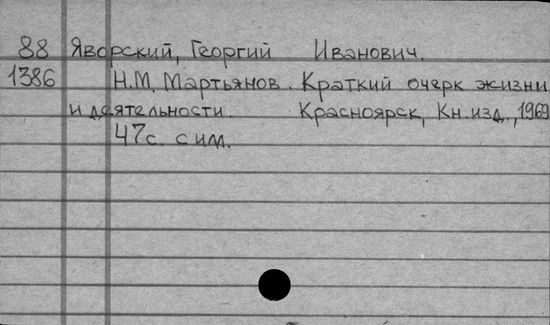 88 Яворский, Георгий Иванович.
1386 Н.М. Мартьянов. Краткий очерк жизни
и деятельности. Красноярск, Кн.изд., 1969
47с. с им.